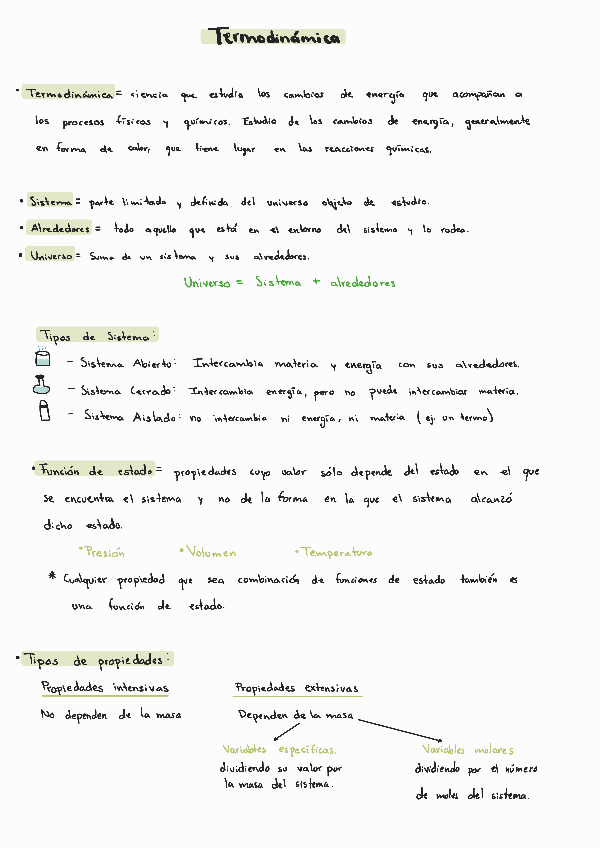 Termodinámica
• Termodinámica = ciencia que estudia los cambios de energía que acompañan a
los procesos físicos y químicos. Estudio de los cambios de energía, generalmente
en forma de calor, que tiene lugar en las reacciones químicas.
• Sistema = parte limitada y definida del universo objeto de estudio.
• Alrededores = todo aquello que está en el entorno del sistema y lo rodea.
• Universo = Suma de un sistema y sus alrededores.
Universo = Sistema + alrededores
Tipos de Sistema:
- Sistema Abierto: Intercambia materia y energía con sus alrededores.
- Sistema Cerrado: Intercambia energía, pero no puede intercambiar materia.
- Sistema Aislado: no intercambia ni energía, ni materia (ej. un termo)
• Función de estado = propiedades cuyo valor sólo depende del estado en el que
se encuentra el sistema y no de la forma en la que el sistema alcanzó
dicho estado.
• Presión • Volumen • Temperatura
* Cualquier propiedad que sea combinación de funciones de estado también es
una función de estado.
• Tipos de propiedades:
Propiedades intensivas Propiedades extensivas
No dependen de la masa Dependen de la masa
Variables específicas. Variables molares
dividiendo su valor por dividiendo por el número
la masa del sistema. de moles del sistema.